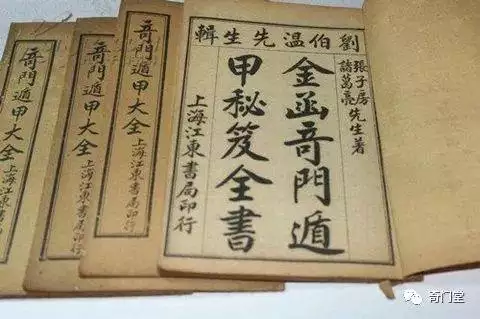 劉伯温先生輯
張子房
諸葛亮
先生著
金函竒門遁
甲秘笈全書
上海江東書局印行
竒門遁甲大全
上海江東書局印行
竒門遁甲大全
上海江東書局印行
竒門遁甲大全
上海江東書局印
奇门堂